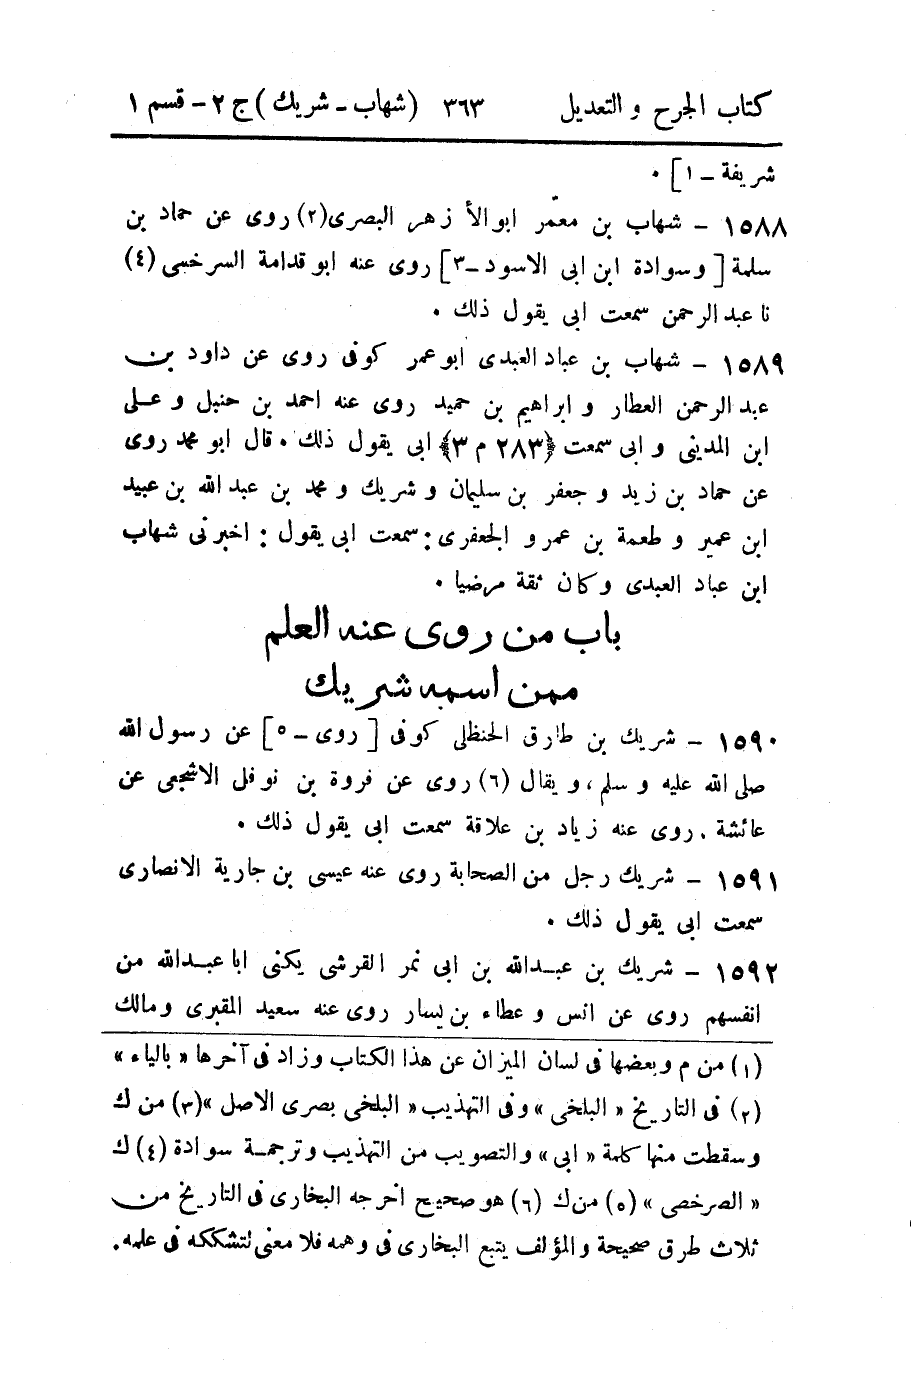 كتاب الجرح والتعديل ٣٦٣ (شهاب ـ شريك) ج ٢ – قسم ١
شريفة ـ ١] ٠
١٥٨٨ – شهاب بن معمر ابو الأزهر البصرى (٢) روى عن حماد بن
سلمة [وسوادة ابن ابى الاسود ـ ٣] روى عنه ابو قدامة السرخسى (٤)
نا عبد الرحمن سمعت ابى يقول ذلك ٠
١٥٨٩ – شهاب بن عباد العبدى ابو عمر كوفى روى عن داود بن
عبد الرحمن العطار و ابراهيم بن حميد روى عنه احمد بن حنبل و على
ابن المدينى و ابى سمعت ﴿٢٨٣ م ٣﴾ ابى يقول ذلك ٠ قال ابو محمد روى
عن حماد بن زيد و جعفر بن سليمان و شريك و محمد بن عبد الله بن عبيد
ابن عمير و طعمة بن عمرو الجعفرى : سمعت ابى يقول : اخبرنى شهاب
ابن عباد العبدى وكان ثقة مرضيا ٠
باب من روى عنه العلم
ممن اسمه شريك
١٥٩٠ – شريك بن طارق الحنظلى كوفى [روى ـ ٥] عن رسول الله
صلى الله عليه و سلم، و يقال (٦) روى عن فروة بن نوفل الاشجعى عن
عائشة . روى عنه زياد بن علاقة سمعت ابى يقول ذلك ٠
١٥٩١ – شريك رجل من الصحابة روى عنه عيسى بن جارية الانصارى
سمعت ابى يقول ذلك ٠
١٥٩٢ – شريك بن عبد الله بن ابى نمر القرشى يكنى ابا عبد الله من
انفسهم روى عن انس و عطاء بن يسار روى عنه سعيد المقبرى ومالك
(١) من م وبعضها فى لسان الميزان عن هذا الكتاب وزاد فى آخرها « بالياء »
(٢) فى التاريخ « البلخى » وفى التهذيب « البلخى بصرى الاصل » (٣) من ك
وسقطت منها كلمة « ابى » والتصويب من التهذيب وترجمة سوادة (٤) ك
« الصرخصى » (٥) من ك (٦) هو صحيح اخرجه البخارى فى التاريخ من
ثلاث طرق صحيحة والمؤلف يتبع البخارى فى وهمه فلا معنى لتشككه فى علمه.